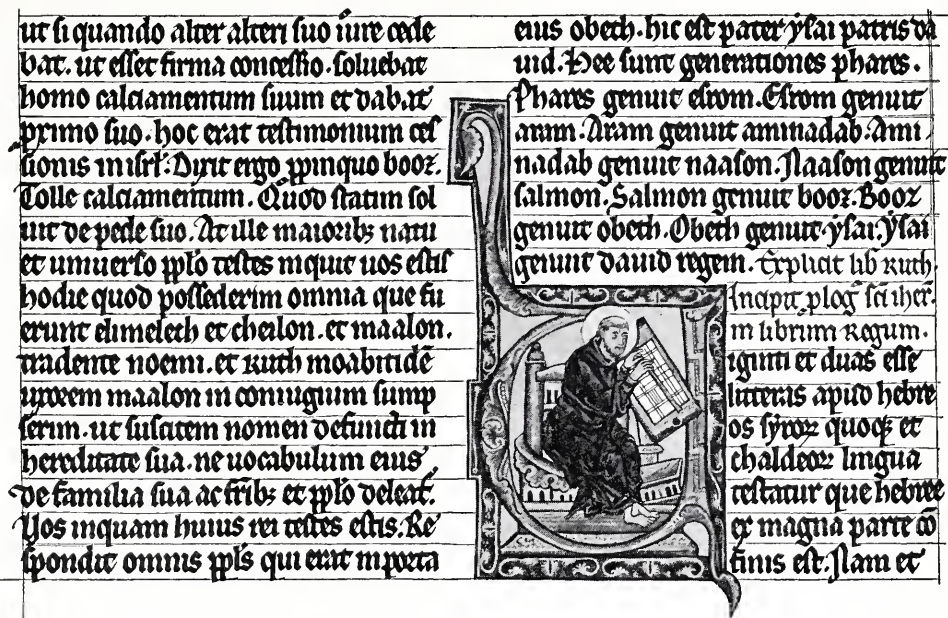 ut si quando alter alteri suo iure cede
bat. ut esset firma concessio. soluebat
homo calciamentum suum et dabat
primo suo. hoc erat testimonium ces
sionis in isrl. Dixit ergo ppinquo booz.
Tolle calciamentum. Quod statim sol
uit de pede suo. At ille maioribz natu
et uniuerso pplo testes inquit uos estis
hodie quod possederim omnia que fu
erunt elimelech et cheilon. et maalon.
tradente noemi. et Ruth moabitidē
uxorem maalon in coniugium sump
serim. ut suscitem nomen defuncti in
hereditate sua. ne uocabulum eius
de familia sua ac frībz et pplo deleat.
Vos inquam huius rei testes estis. Re
spondit omnis ppls qui erat in porta
eius obeth. hic est pater ysai patris da
uid. Hee sunt generationes phares.
Phares genuit esrom. Esrom genuit
aram. Aram genuit aminadab. Ami
nadab genuit naason. Naason genuit
salmon. Salmon genuit booz. Booz
genuit obeth. Obeth genuit ysai. Ysai
genuit dauid regem. Explicit lib Ruth.
Incipit plog sci iher.
in librum Regum.
iginti et duas esse
litteras apud hebre
os syroꝝ quoqꝫ et
chaldeoꝝ lingua
testatur que hebree
ex magna parte cō
finis est. Nam et